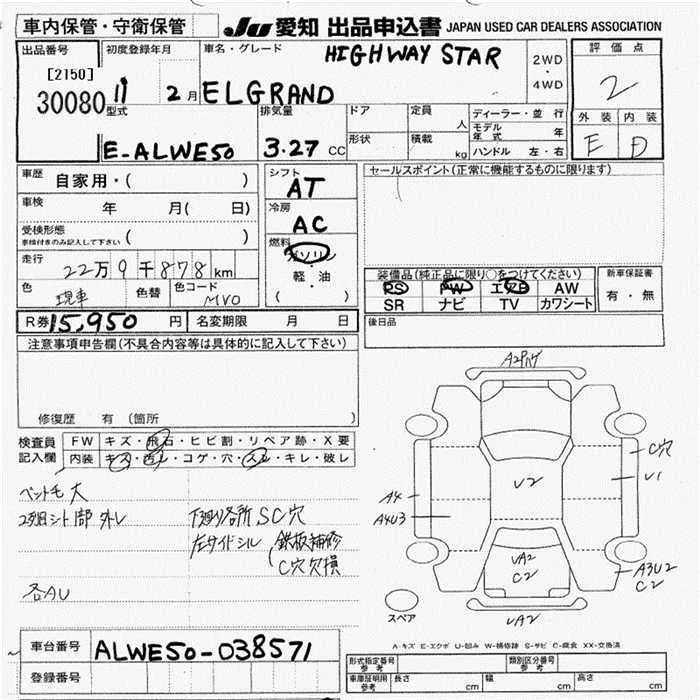 車内保管・守衛保管
JU 愛知 出品申込書 JAPAN USED CAR DEALERS ASSOCIATION
出品番号 初度登録年月 車名・グレード HIGHWAY STAR 2WD・4WD 評価点
[2150]
30080 11 2月 ELGRAND 2
型式 排気量 ドア 定員 人 ディーラー・並行 外装 内装
形状 積載 kg モデル年式 年
E-ALWE50 3.27 CC ハンドル 左・右 E D
車歴 自家用・( ) シフト AT セールスポイント(正常に機能するものに限ります)
車検 年 月( 日) 冷房 AC
受検形態 ( )
車検付きのみ記入して下さい
燃料 ガソリン・軽・油 ( )
走行 22万9千878km
装備品(純正品に限り○をつけてください) 新車保証書
PS PW エアB AW 有・無
SR ナビ TV カワシート
色 現車 色替 色コード MV0
R券 15,950円 名変期限 月 日 後日品
注意事項申告欄(不具合内容等は具体的に記入して下さい)
修復歴 有(箇所 )
検査員記入欄 FW キズ・飛石・ヒビ割・リペア跡・X要
内装 キズ・汚レ・コゲ・穴・スレ・キレ・破レ
ペット毛大
2列目シート部外レ 下廻り各所SC穴
左サイドシル (鉄板補修
C穴欠損
各AU
A2
C穴
U1
U2
A4
A4U3
A3U2
C2
UA2
C2
UA2
スペア
A-キズ E-エクボ U-凹み W-補修跡 S-サビ C-腐食 XX-交換済
車台番号 ALWE50-038571
登録番号
形式指定番号 参考 類別区分番号 参考
車庫証明用 参考 長さ cm 幅 cm 高さ cm